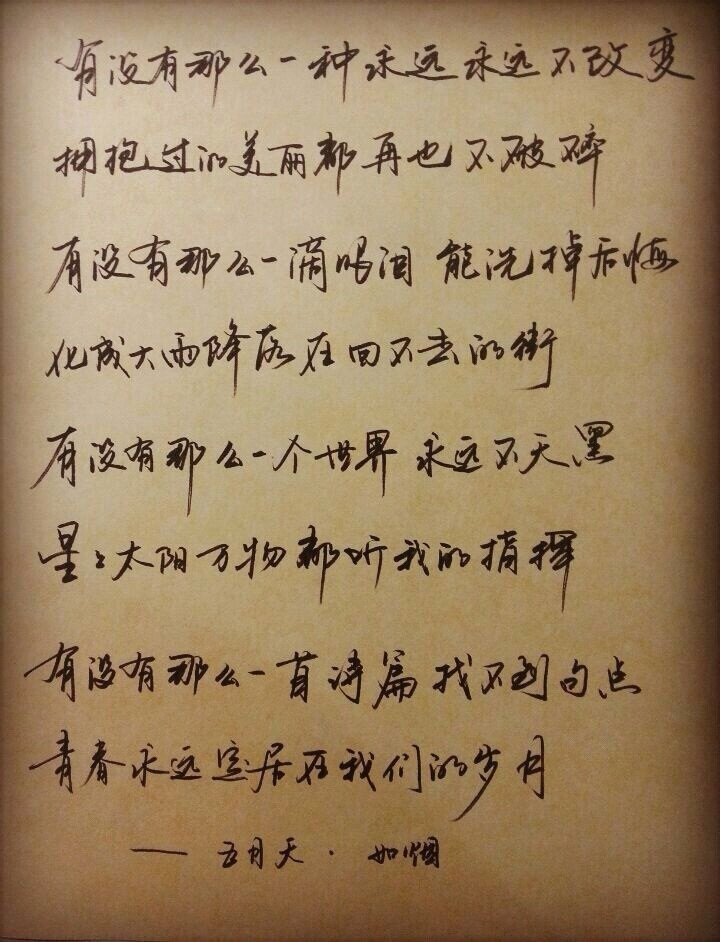 有没有那么一种永远 永远不改变
拥抱过的美丽都再也不破碎
有没有那么一滴眼泪 能洗掉后悔
化成大雨降落在回不去的街
有没有那么一个世界 永远不天黑
星々太阳万物都听我的指挥
有没有那么一首诗篇 找不到句点
青春永远定居在我们的岁月
—— 五月天 · 如烟